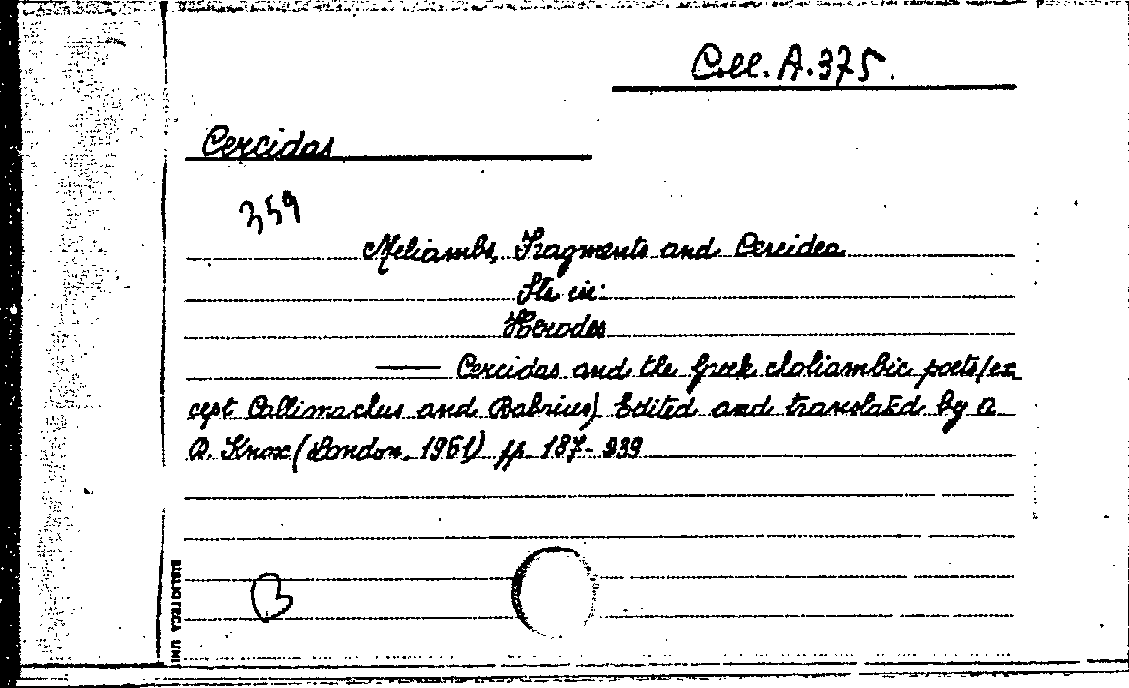 Coll. A.375.
Cercidas
359
Meliambs, Fragments and Cercidea
Sta in:
Herodes
—— Cercidas and the Greek choliambic poets/ex
cept Callimachus and Babrius) Edited and translated by A
D. Knox (London, 1961) pp. 187-239
B
BIBLIOTECA UNI